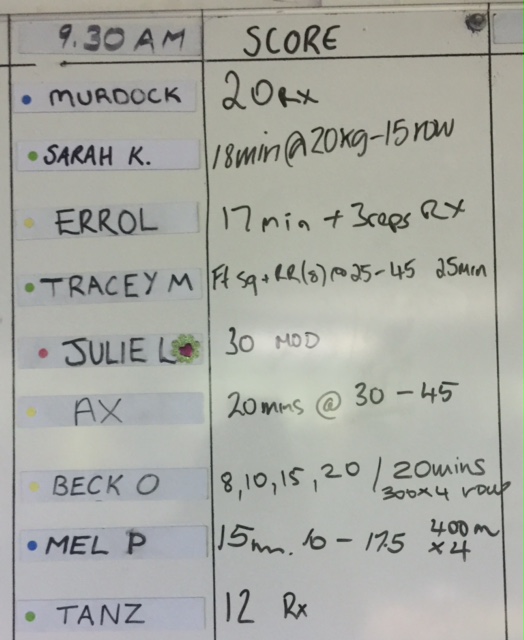 9.30 AM SCORE
MURDOCK 20 RX
SARAH K. 18min @ 20kg-15 row
ERROL 17 min + 3 reps RX
TRACEY M Ft Sq + RR(8) @ 25-45 25min
JULIE L 30 MOD
AX 20mins @ 30-45
BECK O 8,10,15,20 / 20mins
300x4 row
MEL P 15min. 10 - 17.5 400m
x4
TANZ 12 Rx